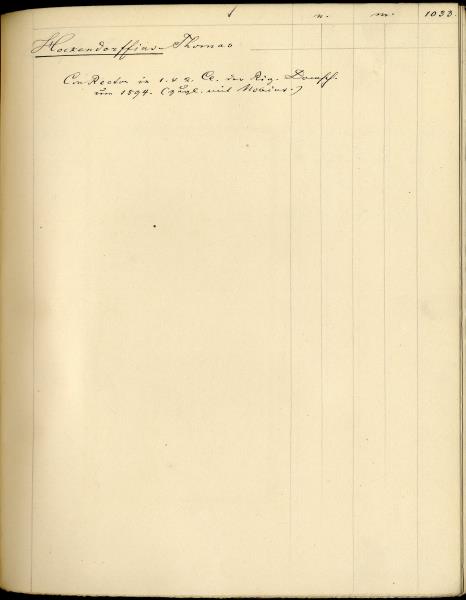 n. m. 1033.
Hockendorffius Thomas
ConRector in 1. u 2. Cl. der Rig. Domsch.
um 1594. (zugl. mit Mobius.)